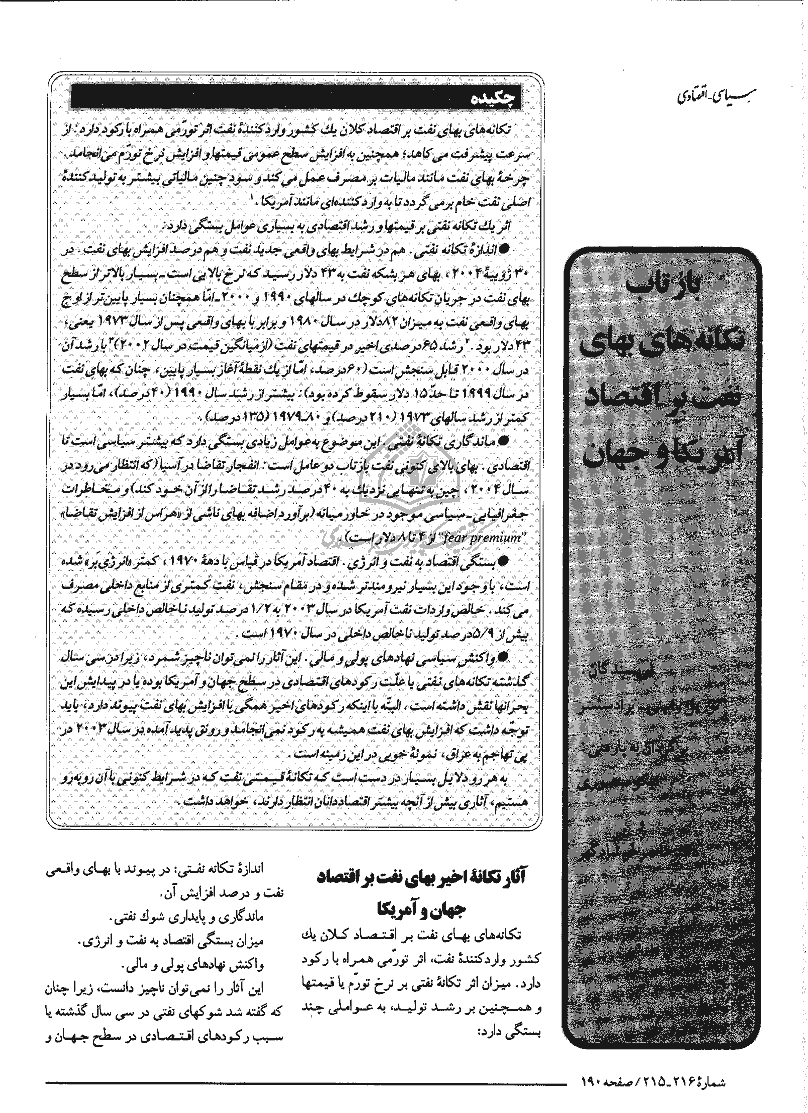 سیاسی-اقتصادی
بازتاب
تکانه‌های بهای
نفت بر اقتصاد
آمریکا و جهان
چکیده
تکانه‌های بهای نفت بر اقتصاد کلان یك کشور وارد کنندهٔ نفت اثر تورّمی همراه با رکود دارد: از
سرعت پیشرفت می‌کاهد؛ همچنین به افزایش سطح عمومی قیمتها و افزایش نرخ تورّم می‌انجامد.
چرخهٔ بهای نفت مانند مالیات بر مصرف عمل می‌کند و سود چنین مالیاتی بیشتر به تولیدکنندهٔ
اصلی نفت خام برمی‌گردد تا به واردکننده‌ای مانند آمریکا.۱
اثر یك تکانه نفتی بر قیمتها و رشد اقتصادی به بسیاری عوامل بستگی دارد:
●اندازهٔ تکانه نفتی. هم در شرایط بهای واقعی جدید نفت و هم درصد افزایش بهای نفت. در
۳۰ ژوییهٔ ۲۰۰۴، بهای هر بشکه نفت به ۴۳ دلار رسید که نرخ بالایی است-بسیار بالاتر از سطح
بهای نفت در جریان تکانه‌های کوچك در سالهای ۱۹۹۰ و ۲۰۰۰-امّا همچنان بسیار پایین‌تر از اوج
بهای واقعی نفت به میزان ۸۲ دلار در سال ۱۹۸۰ و برابر با بهای واقعی پس از سال ۱۹۷۳ یعنی،
۴۳ دلار بود.۲ رشد ۶۵ درصدی اخیر در قیمتهای نفت (از میانگین قیمت در سال ۲۰۰۲)۳ با رشد آن
در سال ۲۰۰۰ قابل سنجش است (۶۰درصد، امّا از یك نقطهٔ آغاز بسیار پایین، چنان که بهای نفت
در سال ۱۹۹۹ تا حدّ ۱۵ دلار سقوط کرده بود): بیشتر از رشد سال ۱۹۹۰ (۴۰درصد)، امّا بسیار
کمتر از رشد سالهای ۱۹۷۳ (۲۱۰ درصد) و ۸۰-۱۹۷۹ (۱۳۵ درصد).
●ماندگاری تکانهٔ نفتی. این موضوع به عوامل زیادی بستگی دارد که بیشتر سیاسی است تا
اقتصادی. بهای بالای کنونی نفت بازتاب دو عامل است: انفجار تقاضا در آسیا (که انتظار می‌رود در
سال ۲۰۰۴، چین به تنهایی نزدیك به ۴۰ درصد رشد تقاضا را از آن خود کند) و مخاطرات
جغرافیایی-سیاسی موجود در خاورمیانه (برآورد اضافه بهای ناشی از «هراس از افزایش تقاضا»
"fear premium" از ۴ تا ۸ دلار است).
●بستگی اقتصاد به نفت و انرژی. اقتصاد آمریکا در قیاس با دههٔ ۱۹۷۰، کمتر «انرژی‌بر» شده
است، با وجود این بسیار نیرومندتر شده و در مقام سنجش، نفت کمتری از منابع داخلی مصرف
می‌کند. خالص واردات نفت آمریکا در سال ۲۰۰۳ به ۱/۲ درصد تولید ناخالص داخلی رسیده که
بیش از ۵/۹درصد تولید ناخالص داخلی در سال ۱۹۷۰ است.
●واکنش سیاسی نهادهای پولی و مالی. این آثار را نمی‌توان ناچیز شمرد، زیرا در سی سال
گذشته تکانه‌های نفتی یا علّت رکودهای اقتصادی در سطح جهان و آمریکا بوده یا در پیدایش این
بحرانها نقش داشته است. البتّه با اینکه رکودهای اخیر همگی با افزایش بهای نفت پیوند دارد، باید
توجّه داشت که افزایش بهای نفت همیشه به رکود نمی‌انجامد و رونق پدید آمده در سال ۲۰۰۳ در
پی تهاجم به عراق، نمونهٔ خوبی در این زمینه است.
به هر رو دلایل بسیار در دست است که تکانهٔ قیمتی نفت که در شرایط کنونی با آن روبه‌رو
هستیم، آثاری بیش از آنچه بیشتر اقتصاددانان انتظار دارند، خواهد داشت.
آثار تکانهٔ اخیر بهای نفت بر اقتصاد
جهان و آمریکا
تکانه‌های بهای نفت بر اقتصاد کلان یك
کشور واردکنندهٔ نفت، اثر تورّمی همراه با رکود
دارد. میزان اثر تکانهٔ نفتی بر نرخ تورّم یا قیمتها
و همچنین بر رشد تولید، به عواملی چند
بستگی دارد:
اندازهٔ تکانه نفتی: در پیوند با بهای واقعی
نفت و درصد افزایش آن.
ماندگاری و پایداری شوك نفتی.
میزان بستگی اقتصاد به نفت و انرژی.
واکنش نهادهای پولی و مالی.
این آثار را نمی‌توان ناچیز دانست، زیرا چنان
که گفته شد شوکهای نفتی در سی سال گذشته یا
سبب رکودهای اقتصادی در سطح جهان و
شمارهٔ ۲۱۶-۲۱۵/صفحه ۱۹۰